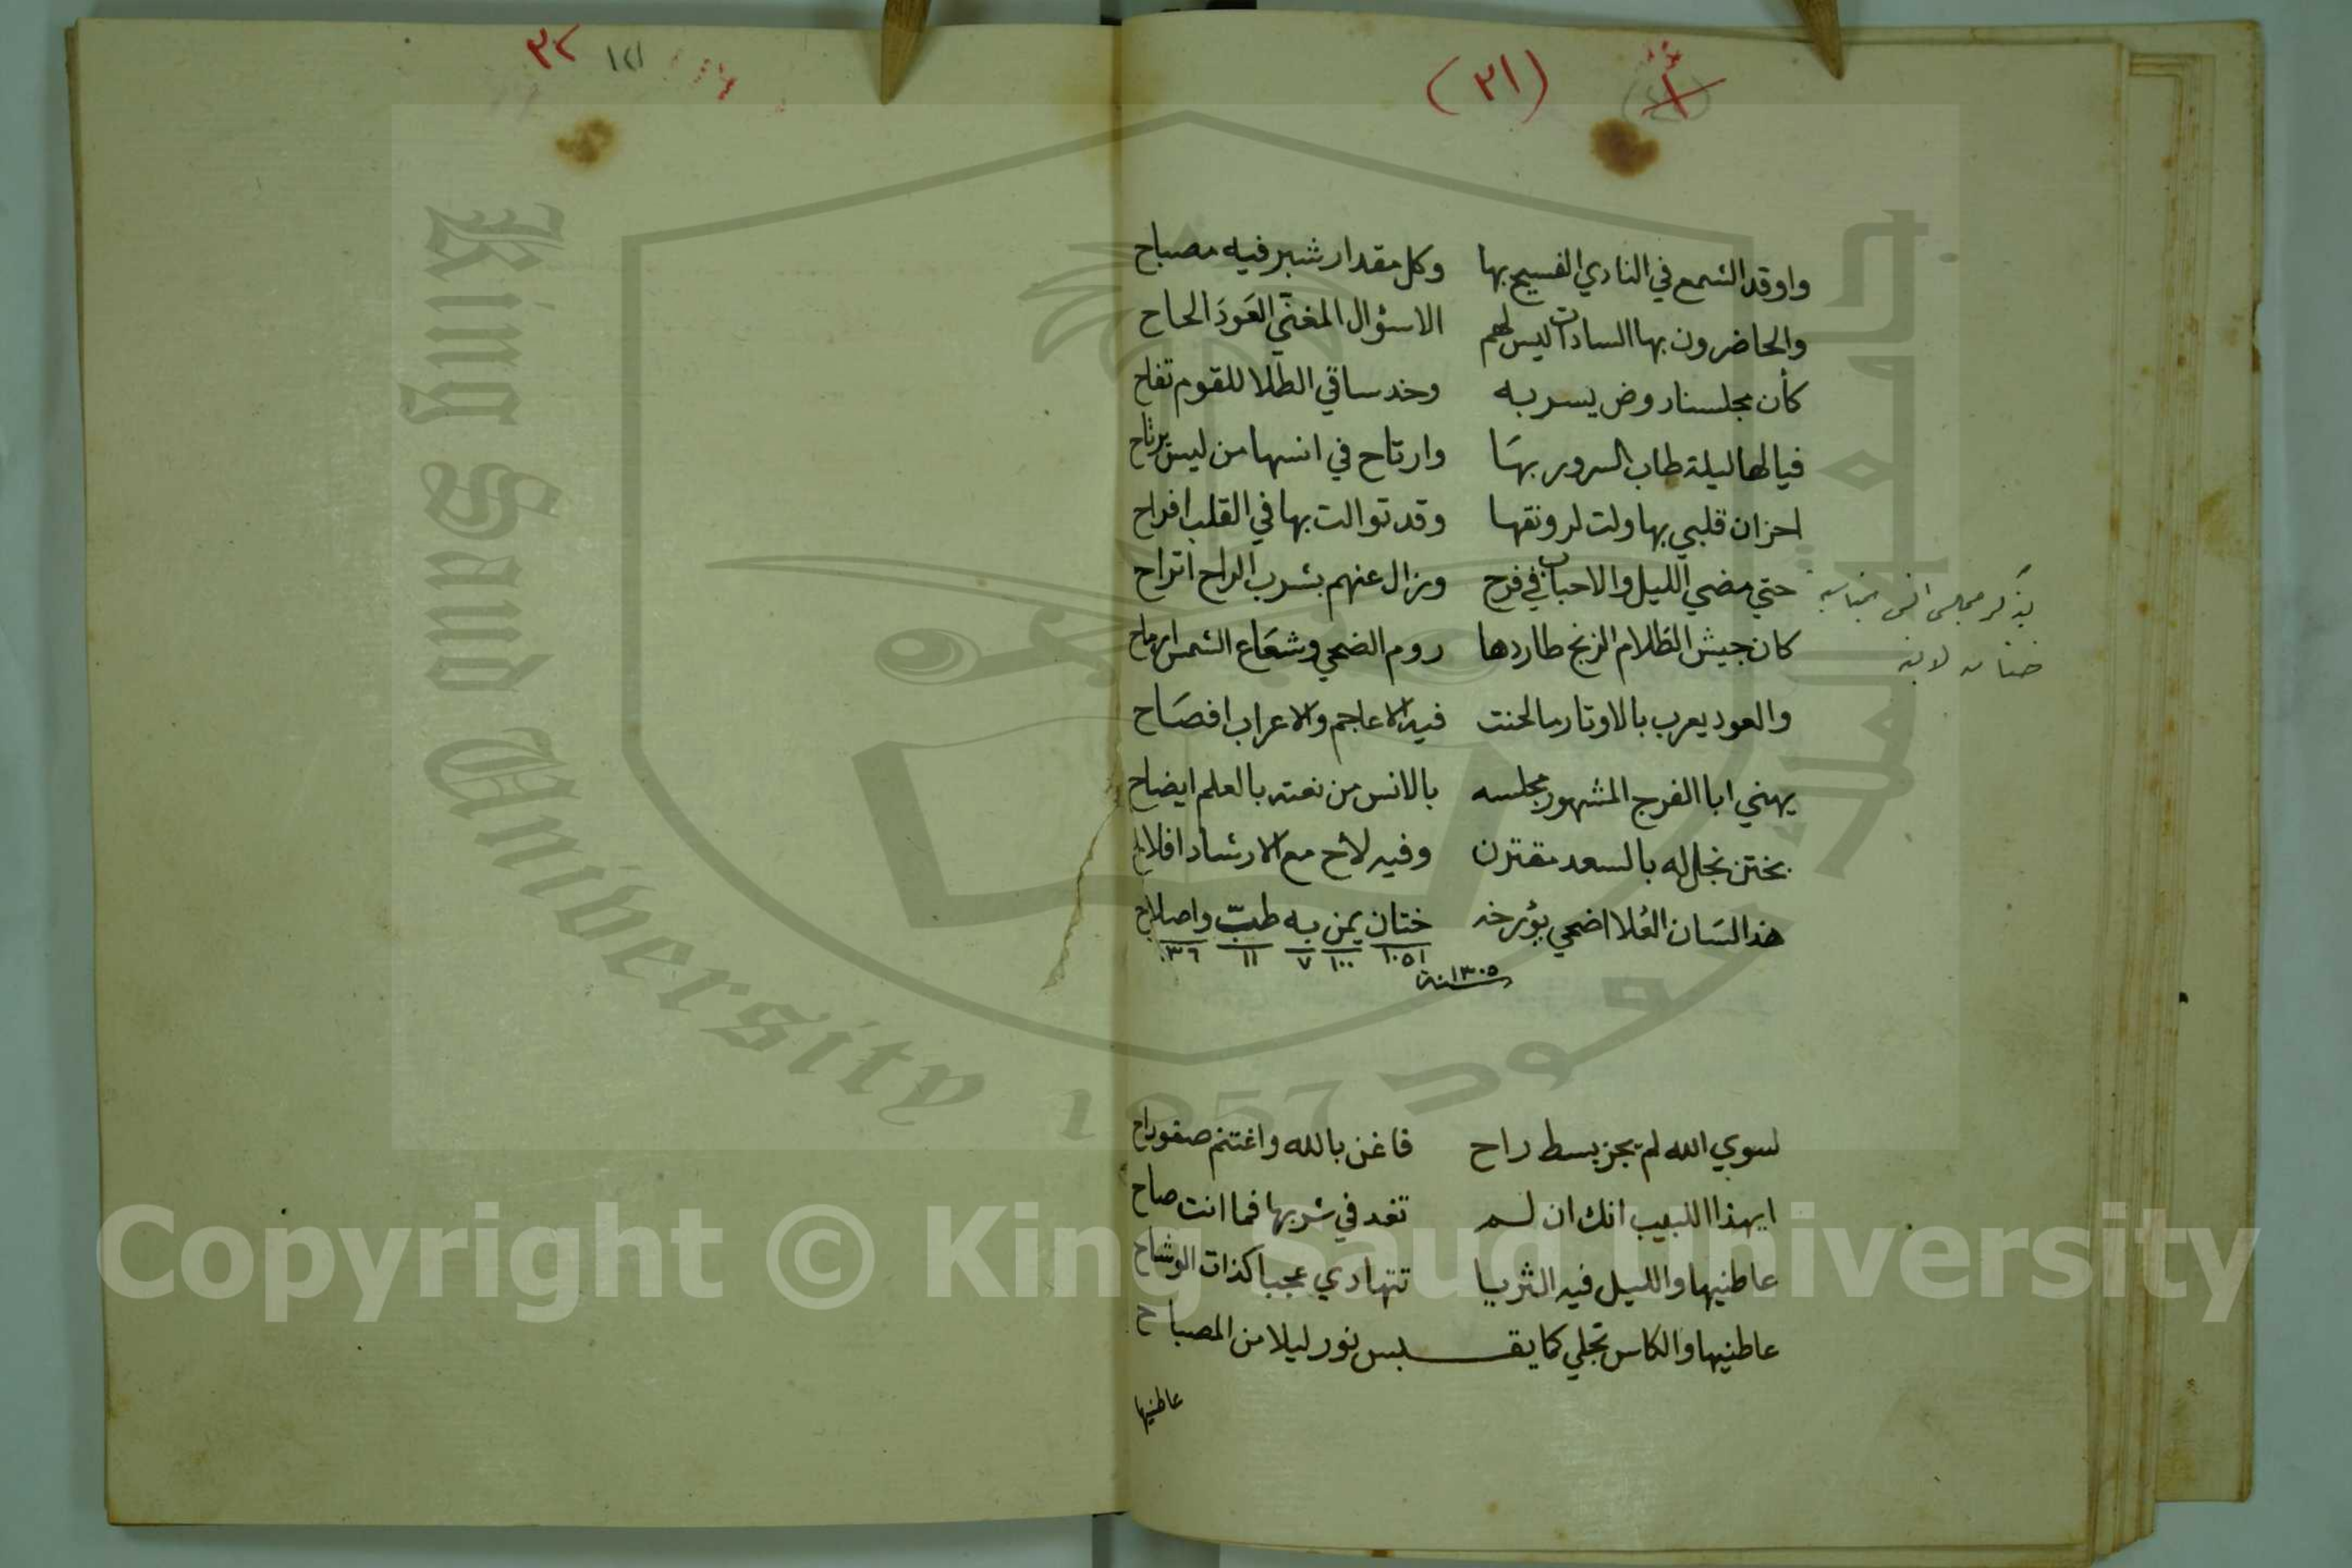 (٣١)
واوقد الشمع في النادي الفسيح بها وكل مقدار شبر فيه مصباح
والحاضرون بها السادات ليس لهم الاسؤال المغنّي العَودَ الحاح
كأن مجلسنا روض يسر به وخد ساقي الطلا للقوم تفاح
فيالها ليلة طاب السرور بهَا وارتاح في انسها من ليس يرتاح
احزان قلبي بها ولت لرونقها وقد توالت بها في القلب افراح
حتي مضي الليل والاحباب في فرح وزال عنهم بشرب الراح اتراح
كان جيش الظلام الزنج طاردها روم الضحي وشعَاع الشمس ارماح
والعود يعرب بالاوتار ما لحنت فيه الاعاجم والاعراب افصَاح
يهني ابا الفرج المشهور مجلسه بالانس من نعته بالعلم ايضاح
بختن نجل له بالسعد مقترن وفيه لاح مع الارشاد افلاح
هذا لسَان العُلا اضحي يؤرخه ختان يمن به طبّ واصلاح
١٠٥١ ١٠٠ ٧ ١١ ١٣٦
سنة ١٣٠٥
يذكر مجلس انس بمناسبة
ختان لابنه
لسوي الله لم يجز بسط راح فاغن بالله واغتنم صفو راح
ايهذا اللبيب انك ان لم تغد في شربها فما انت صاح
عاطنيها والليل فيه الثريا تتهادي عجبا كذات الوشاح
عاطنيها والكاس تجلي كما يقـبس نور ليلا من المصباح
عاطنيها
٣٢ ١٢١
King Saud University 1957
جامعة الملك سعود
Copyright © King Saud University